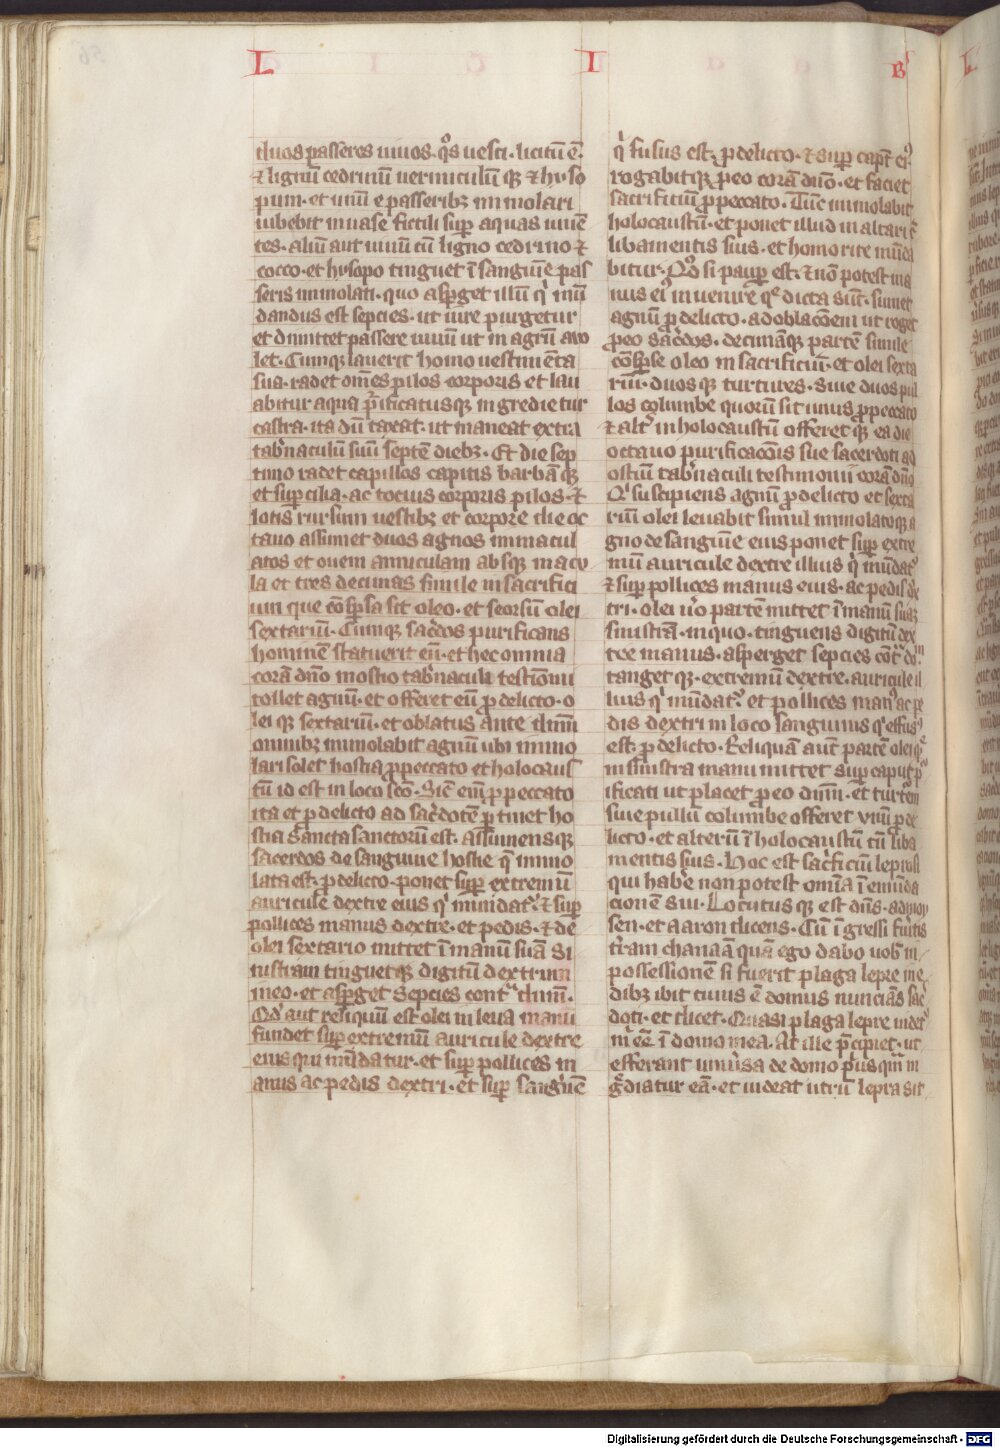 L I B
duos passeres uiuos. q̊s uesci. licitu̅ e̅.
⁊ lignu̅ cedrinu̅ uermiculu̅ qꝫ ⁊ hyso
pum. et unu̅ e passeribꝫ immolari
iubebit in uase fictili suꝑ aquas uiue̅
tes. aliu̅ aut uiuu̅ cu̅ ligno cedrino ⁊
cocco. et hysopo tinguet i̅ sanguine pas
seris immolati. quo asꝑget illu̅ q̇ mu̅
dandus est sepcies. ut iure purgetur
et dimittet passere uiuu̅ ut in agru̅ auo
let. Cumqꝫ lauerit homo uestime̅ta
sua. radet om̅es pilos corporis et lau
abitur aqua pͥificatusqꝫ ingredietur
castra. ita du̅ taxat. ut maneat extra
tab̓naculu̅ suu̅ septe̅ diebꝫ. Et die sep
timo radet capillos capitis barba̅ qꝫ
et suꝑcilia. ac tocius corporis pilos. ⁊
lotis rursum uestibꝫ et corpore die oc
tauo assumet duos agnos immacul
atos et ouem anniculam absqꝫ macu
la et tres decimas simile in sacrifici
um que co̅sꝑsa sit oleo. et seorsu̅ olei
sextariu̅. Cumqꝫ sac̓dos purificans
homine̅ statuerit eu̅. et hec omnia
cora̅ dn̅o in ostio tab̓nacula testi̅onii
tollet agnu̅. et offeret eu̅ ꝓ delicto. o
lei qꝫ sextariu̅. et oblatus ante dn̅m
omnibꝫ immolabit agnu̅ ubi immo
lari solet hostia ꝓ peccato et holocaus
tu̅ id est in loco sc̅o. Sic̅ eni̅ ꝓ peccato
ita et ꝓ delicto ad sac̓dote̅ ꝑtinet ho
stia Sancta sanctoru̅ est. Assumensqꝫ
sacerdos de sanguine hostie q̅ immo
lata est. ꝓ delicto. ponet suꝑ extremu̅
auricule dextre eius q̇ mundat᷑. ⁊ suꝑ
pollices manus dextre. et pedis. ⁊ de
olei sextario mittet i̅ manu̅ sua̅ si
nistram tinguetqꝫ digitu̅ dextrum
in eo. et asꝑget Sepcies contͣ dn̅m.
Qd̓ aut reliquu̅ est olei in leua manu
fundet suꝑ extremu̅ auricule dextre
eius qui mu̅datur. et suꝑ pollices m
anus ac pedis dextri. et suꝑ sangine̅
q̇ fusus est. ꝓ delicto. ⁊ suꝑ capt̅ ei᷒
rogabitqꝫ ꝓ eo cora̅ dn̅o. et faciet
sacrificiu̅ ꝓ peccato. Tu̅c immolabit
holocaustu̅. et ponet illud in altari c̅
libamentis suis. et homo rite mu̅da
bitur. Qd̓ si pauꝑ est. ⁊ no̅ potest ma
nus ei᷒ inuenire q̅ dicta su̅t. sumet
agnu̅ ꝓ delicto. ad oblac̅oem ut roget
ꝓ eo sac̓dos. decima̅qꝫ parte̅ simile
co̅sꝑse oleo in sacrificiu̅. et olei sexta
riu̅. duos qꝫ turtures. Siue duos pul
los columbe quoru̅ sit unus ꝓ peccato
⁊ alt̓ in holocaustu̅ offeret qꝫ ea die
octauo purificac̅ois sue sacerdoti ad
ostiu̅ tab̓naculi testimonii cora̅ dn̅o
Q̇ suscipiens agnu̅ ꝓ delicto et sexta
riu̅ olei leuabit simul immolatoqꝫ a
gno de sanguine eius ponet suꝑ extre
mu̅ auricule dextre illius q̇ mu̅dat᷑
⁊ suꝑ pollices manus eius. ac pedis de̅
tri. olei u̓o parte̅ mittet i̅ manu̅ suaꝫ
sinistra̅. in quo. tinguens digitu̅ dex
tre manus. asperget sepcies cont̓ do᷑.
tanget qꝫ. extremu̅ dextre. auricule il
lius q̇ mu̅dat᷑. et pollices man᷒ ac pe
dis dextri in loco sanguinis q̇ effus᷒
est. ꝓ delicto. Reliqua̅ aut̅ parte̅ olei q̅
in sinistra manu mittet suꝑ caput pͥ
ificati ut placet ꝓ eo dn̅m. et turtem
siue pullu̅ columbe offeret unu̅ ꝓ de
licto. et alteru̅ i̅ holocaustu̅ cu̅ liba
mentis suis. Hoc est sac̓ficiu̅ leprosi
qui habe̅ non potest om̅ia i̅ emu̅da
cione̅ sui. Locutus qꝫ est dn̅s. ad moy
sen. et aaron dicens. Cu̅ i̅gressi fu̓itis
t̓ram chanaa̅ qua̅ ego dabo uob̅ in
possessione̅ si fuerit plaga lepre in e
dibꝫ ibit cuius e̅ domus nuncia̅s sac̓
doti. et dicet. Quasi plaga lepre uidet᷑
m̓ e̅e̅ i̅ domo mea. At ille p̅cipiet. ut
efferant uniu̓sa de domo pͥusqua̅ in
gͤdiatur ea̅. et uideat utru̅ lepra sit
Digitalisierung gefördert durch die Deutsche Forschungsgemeinschaft - DFG